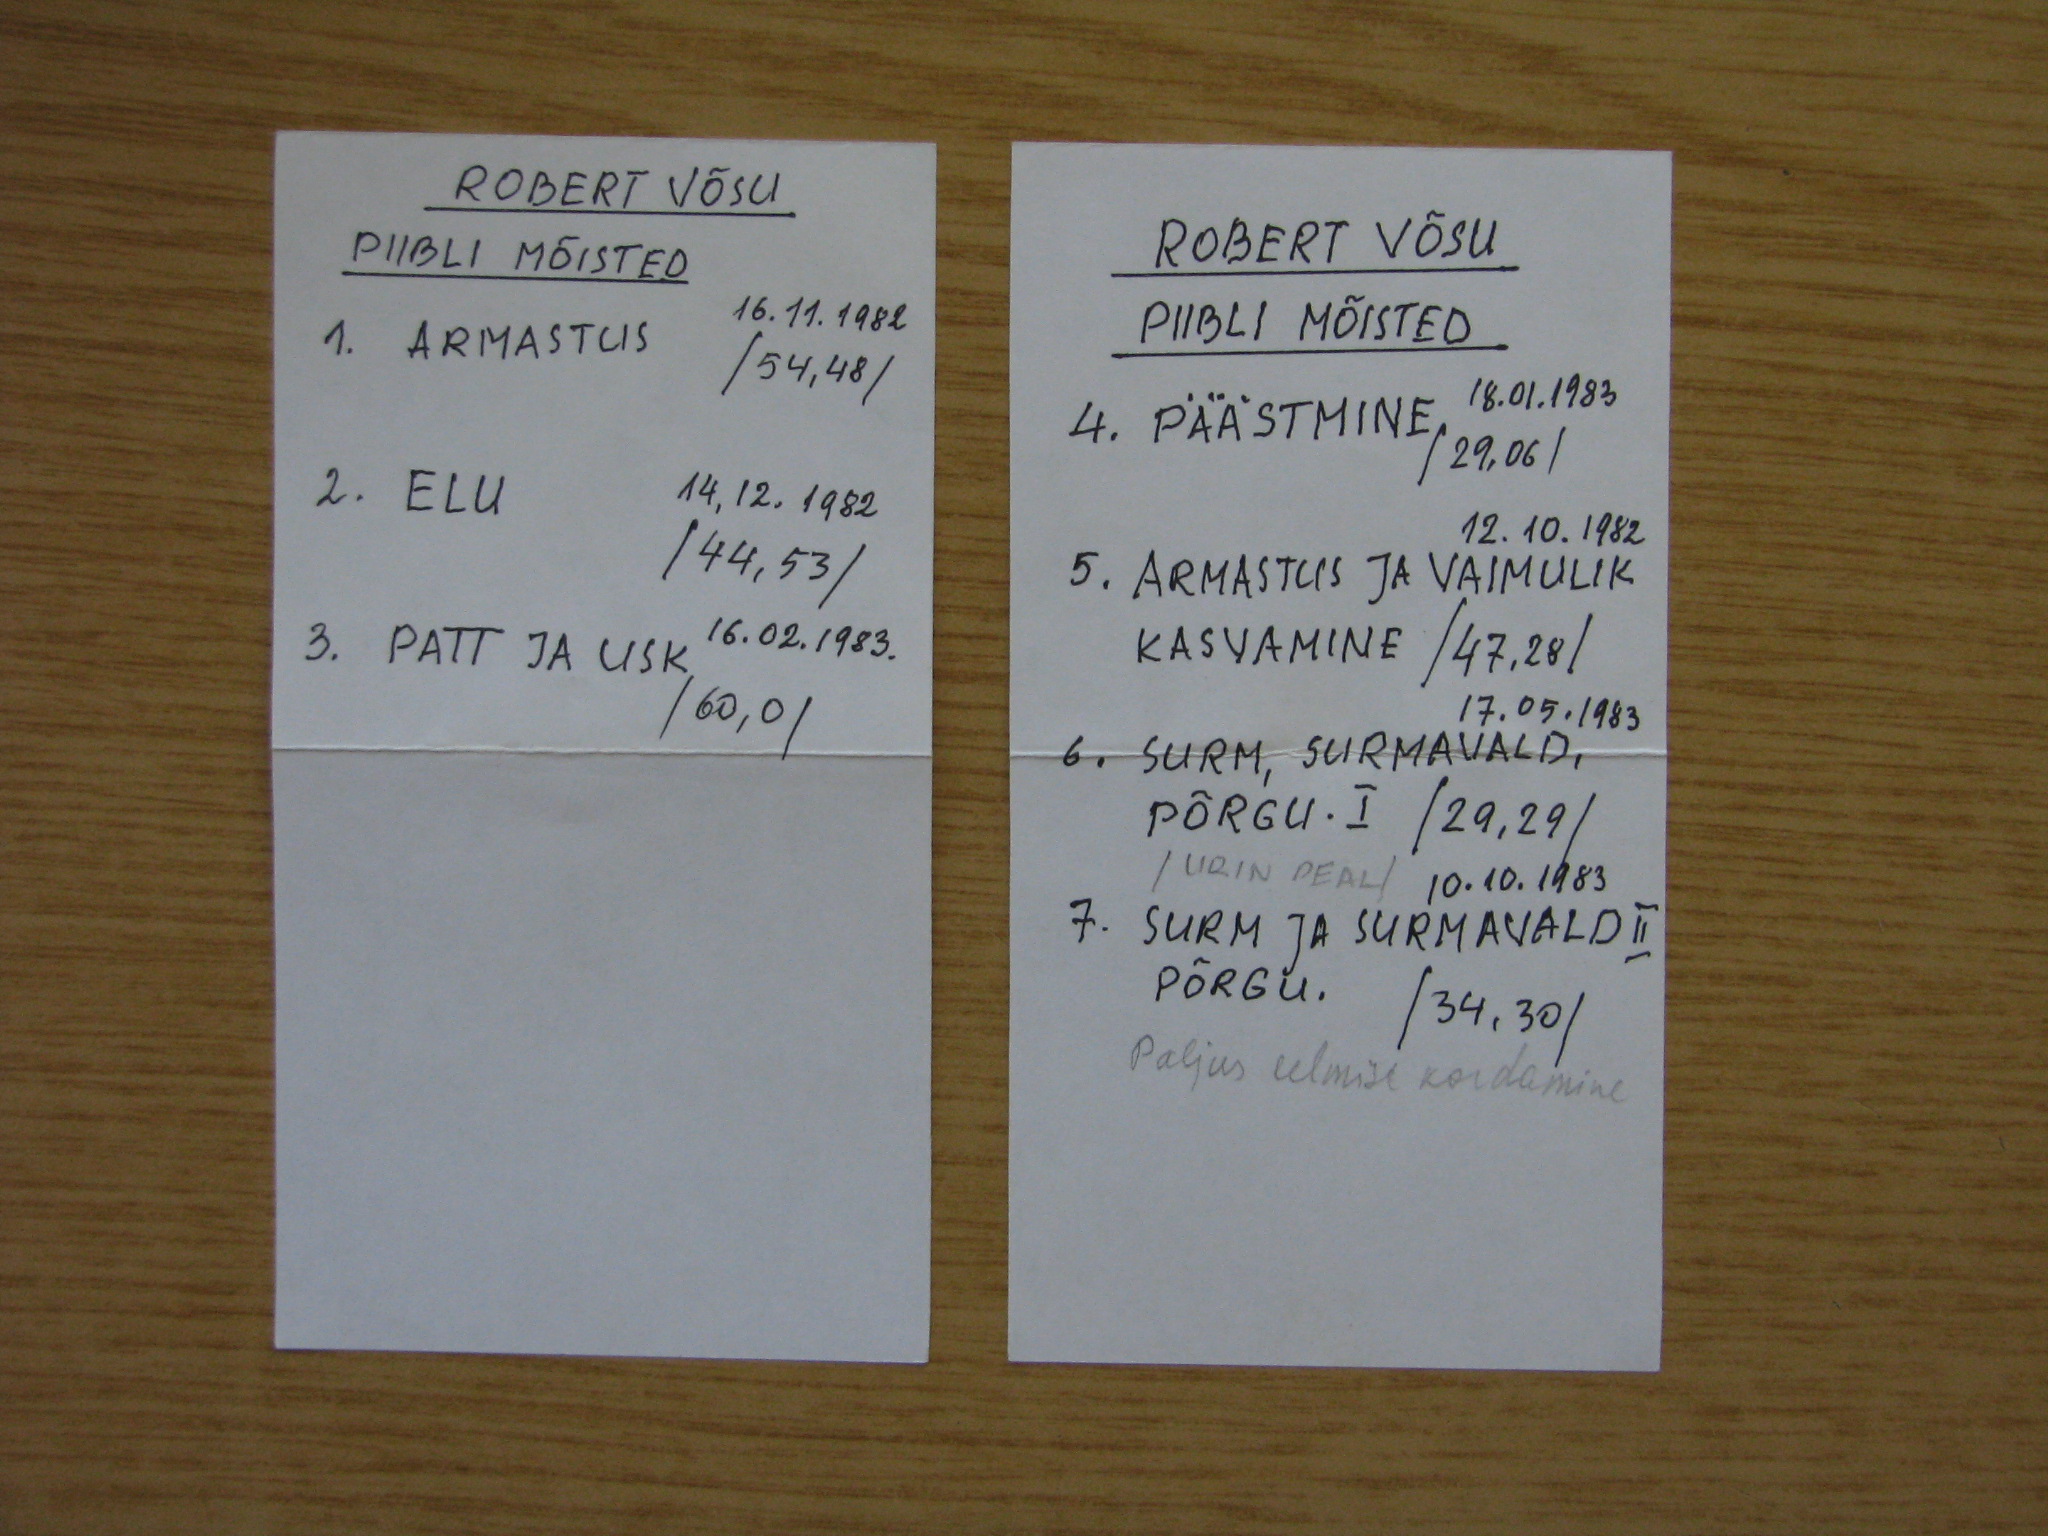 ROBERT VÕSU
PIIBLI MÕISTED
1. ARMASTUS 16.11.1982
/54,48/
2. ELU 14,12. 1982
/44,53/
3. PATT JA USK 16.02.1983.
/60,0/
ROBERT VÕSU
PIIBLI MÕISTED
4. PÄÄSTMINE 18.01.1983
/29,06/
12.10.1982
5. ARMASTUS JA VAIMULIK
KASVAMINE /47,28/
17.05.1983
6. SURM, SURMAVALD,
PÕRGU. I /29,29/
/ PEAL/ 10.10.1983
7. SURM JA SURMAVALD II
PÕRGU. /34,30/
Paljus eelmise kordamine